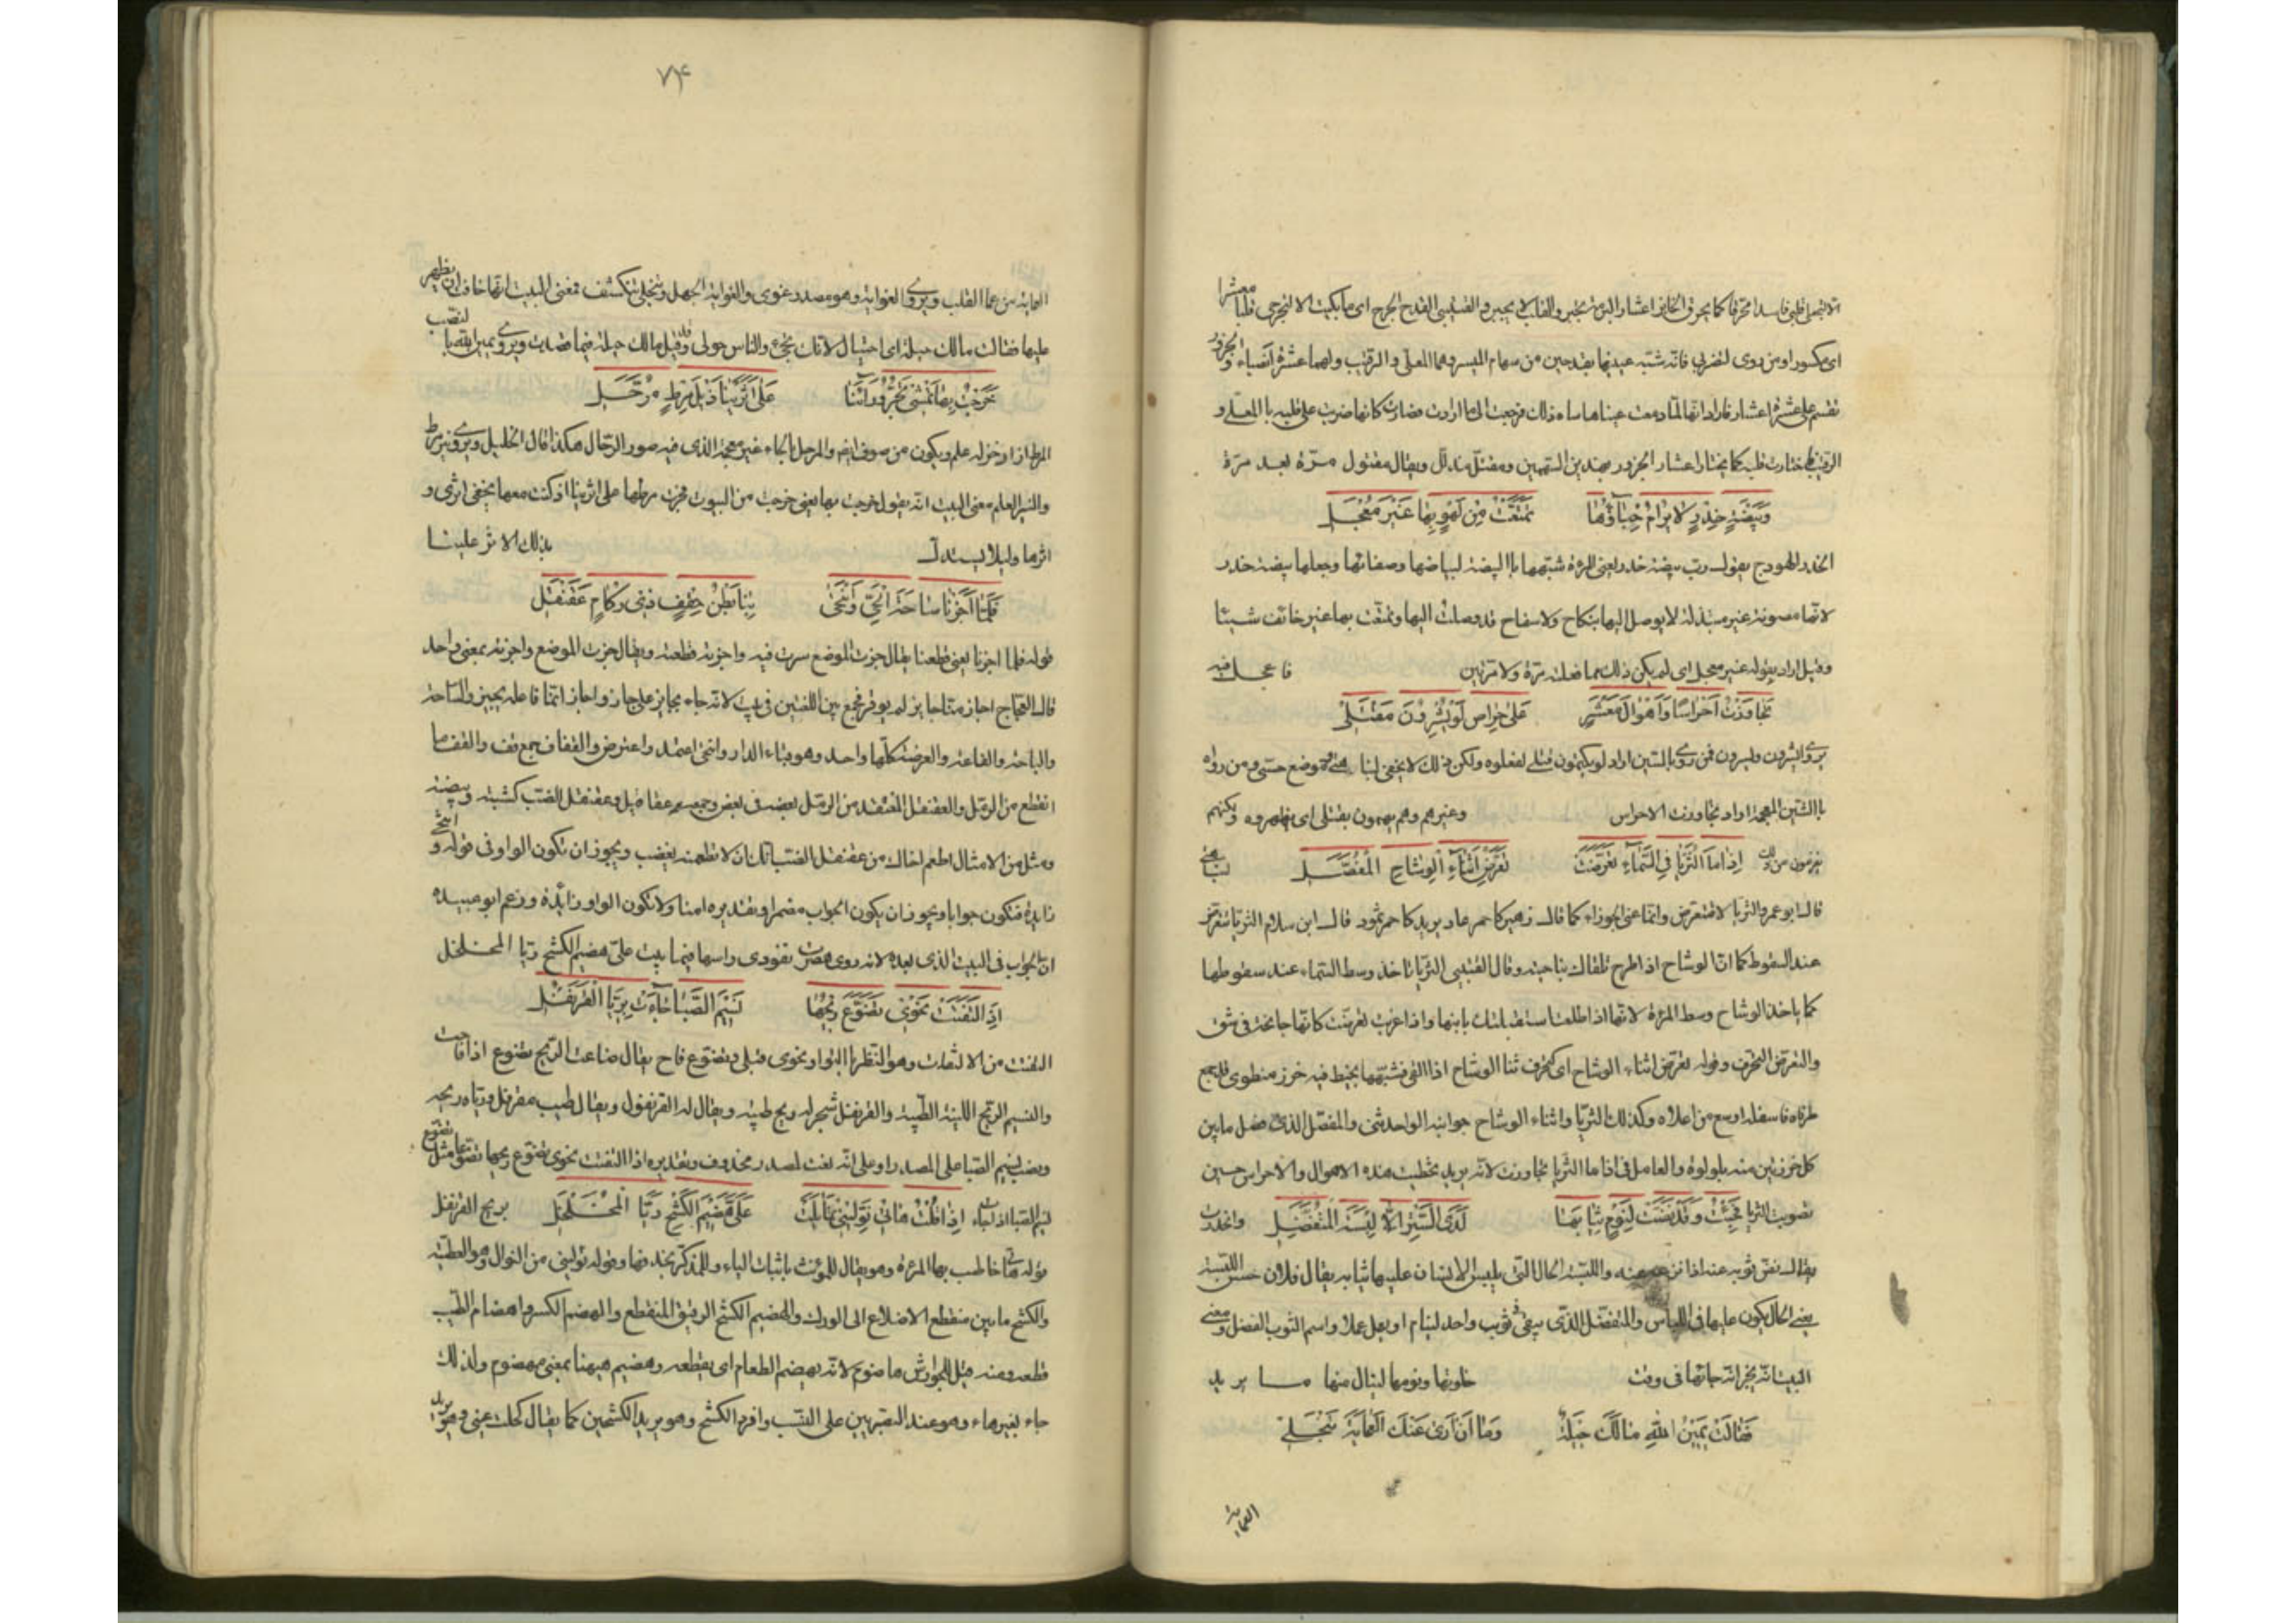 اى مكسورا ومن روى لتضربى فانه شبه عينيها بقدحين من سهام الميسر وهما المعلى والرقيب ولهما عشرة انصباء والجزور
تقسم على عشرة اعشار فاراد انها لما دمعت عيناها ساءه ذلك فرجعت الى ما ارادت فصارت كانها ضربت على قلبه بالمعلى و
الرقيب فاختارت قلبه كما يختار اعشار الجزور بهذين السهمين ومقتل مذلل ويقال مقتول مرّة بعد مرّة
وَبَيْضَةِ خِدْرٍ لا يُرَامُ خِبَآؤُهَا تَمَتَّعْتُ مِنْ لَهْوٍ بِهَا غَيْرَ مُعْجَلِ
الخدر الهودج يقول رب بيضة خدر يعنى المرءة شبهها بالبيضة لبياضها وصفائها وجعلها بيضة خدر
لانها مصونة غير مبتذلة لا يوصل اليها بنكاح ولا سفاح قد وصلت اليها وتمتعت بها غير خائف شيئا
وقيل اراد بقوله غير معجل اى لم يكن ذلك مما فعلت مرّة ولا مرتين فاعجل فيه
تَجَاوَزْتُ اَحْرَاسًا وَاَهْوَالَ مَعْشَرٍ عَلَىَّ حِرَاصٍ لَوْ يُشِرُّونَ مَقْتَلِى
بالشين المعجمة اراد تجاوزت الاحراس وغيرهم وهم يهمون بقتلى اى يظهروه ولكنهم
يفزعون من ذلك اِذَا مَا الثُّرَيَّا فِى السَّمَآءِ تَعَرَّضَتْ تَعَرُّضَ اَثْنَآءِ الْوِشَاحِ الْمُفَصَّلِ
قال ابو عمرو الثريا لا تتعرض وانما عنى الجوزاء كما قال زهير كاحمر عاد يريد كاحمر ثمود قال ابن سلام الثريا تتعرض
عند السقوط كما ان الوشاح اذا طرح تلقاك بناحيته وقال القتيبى الثريا تاخذ وسط السماء عند سقوطها
كما ياخذ الوشاح وسط المرءة لانها اذا طلعت استقبلتك بانفها واذا غربت تعرضت كانها جانحة فى شق
والتعرض التحرف وقوله تعرض اثناء الوشاح اى تحرف ثنا الوشاح اذا القى فشبهها بخيط فيه خرز منطوى قد جمع
طرفاه فاسفله اوسع من اعلاه وكذلك الثريا واثناء الوشاح جوانبه الواحد ثنى والمفصل الذى فصل ما بين
كل خرزتين منه بلولوة والعامل فى اذا ما الثريا تجاوزت لانه يريد تخطيت هذه الاهوال والاحراس حين
تصوبت الثريا فَجِئْتُ وَقَدْ نَضَّتْ لِنَوْمٍ ثِيَابَهَا لَدَى السِّتْرِ اِلَّا لِبْسَةَ الْمُتَفَضِّلِ وانحدرت
يقال نضى ثوبه عنه اذا نزعه عنه واللبسة الحال التى يلبس الانسان عليها ثيابه يقال فلان حسن اللبسة
يعنى الحال يكون عليها فى اللباس والمتفضل الذى يبقى فى ثوب واحد لينام او يعمل عملا واسم الثوب الفضل ومعنى
البيت انه يخبر انه جائها فى وقت خلوتها ونومها لينال منها ما يريد
فَقَالَتْ يَمِيْنُ اللهِ مَا لَكَ حِيْلَةٌ وَمَا اَنْ اَرَى عَنْكَ الْعَمَايَةَ تَنْجَلِى
العماية
٧٤
العماية من عما القلب ويروى الغواية وهو مصدر غوى والغواية الجهل وتنجلى تنكشف فمعنى البيت انها خاف ان يظهر
عليها فقالت مالك حيلة اى احتيال لانك تجىء والناس حولى وقيل مالك حيلة فيما قصدت ويروى يمين الله بالنصب
خَرَجْتُ بِهَا نَمْشِى نَجُرُّ وَرَآءَنَا عَلَى اَثَرَيْنَا ذَيْلَ مِرْطٍ مُرَحَّلِ
المرط ازار خز له علم ويكون من صوف ايضا والمرحل بالحاء غير معجمة الذى فيه صور الرحال هكذا قال الخليل ويروى نير مرط
والنير العلم معنى البيت انه يقول خرجت بها يعنى خرجت من البيوت فجرت مرطها على اثرينا اذ كنت معها يخفى اثرى و
اثرها وليلا يستدل بذلك الاثر علينا
فَلَمَّا اَجَزْنَا سَاحَةَ الْحَىِّ وَانْتَحَى بِنَا بَطْنُ حِقْفٍ ذِى رُكَامٍ عَقَنْقَلِ
قوله فلما اجزنا يعنى قطعنا يقال جزت الموضع سرت فيه واجزته قطعته ويقال جزت الموضع واجزته بمعنى واحد
قال العجاج اجاز منا جايز لم يوقر فجمع بين اللغتين فى بيت لانه جاء بجايز على جاز واجاز انما فاعله يجيز والساحة
والباحة والقاعة والعرصة كلها واحد وهو فناء الدار وانتحى اعتمد واعترض والقفاف جمع قف والقف ما
انقطع من الرمل والعقنقل المنعقد من الرمل بعضه فى بعض وجمعه عقاقيل وعقنقل الضب كشيته وبيضته
ومثل من الامثال اطعم اخاك من عقنقل الضب انك ان لا تطعمه يغضب ويجوز ان تكون الواو فى قوله وانتحى
زايدة فتكون جوابا ويجوز ان يكون الجواب مضمرا وتقديره امنا ولا تكون الواو زائدة وزعم ابو عبيدة
ان الجواب فى البيت الذى بعده لانه روى هصرت بفودى راسها فتمايلت علىّ هضيم الكشح ريا المخلخل
اِذَا الْتَفَتَتْ نَحْوِى تَضَوَّعَ رِيْحُهَا نَسِيْمَ الصَّبَا جَآءَتْ بِرَيَّا الْقَرَنْفُلِ
التفتت من الالتفات وهو النظر بالتواء ونحوى قبلى وتضوع فاح يقال ضاعت الريح تضوع اذا فاحت
والنسيم الريح اللينة الطيبة والقرنفل شجر له ريح طيبة ويقال له القرنفول ويقال طيب مقرفل ورياه ريحه
ونصب نسيم الصبا على المصدر او على انه نعت لمصدر محذوف وتقديره اذا التفتت نحوى تضوع ريحها تضوعا مثل تضوع
نسيم الصبا اذا جاءت اِذَا قُلْتُ هَاتِى نَوِّلِيْنِى تَمَايَلَتْ عَلَىَّ هَضِيْمَ الْكَشْحِ رَيَّا الْمُخَلْخَلِ بريح القرنفل
قوله هاتى خاطب بها المرءة وهو يقال للمونث باثبات الياء وللمذكر بحذفها وقوله نولينى من النوال وهو العطية
والكشح ما بين منقطع الاضلاع الى الورك والهضيم الكشح الرقيق المنقطع والهضم الكسر واهضام الطيب
قطعه ومنه قيل للجوارش هاضوم لانه يهضم الطعام اى يقطعه وهضيم هيهنا بمعنى مهضوم ولذلك
جاء بغير هاء وهو عند البصريين على النسب وافرد الكشح وهو يريد الكشحين كما يقال كحلت عينى وهو يريد